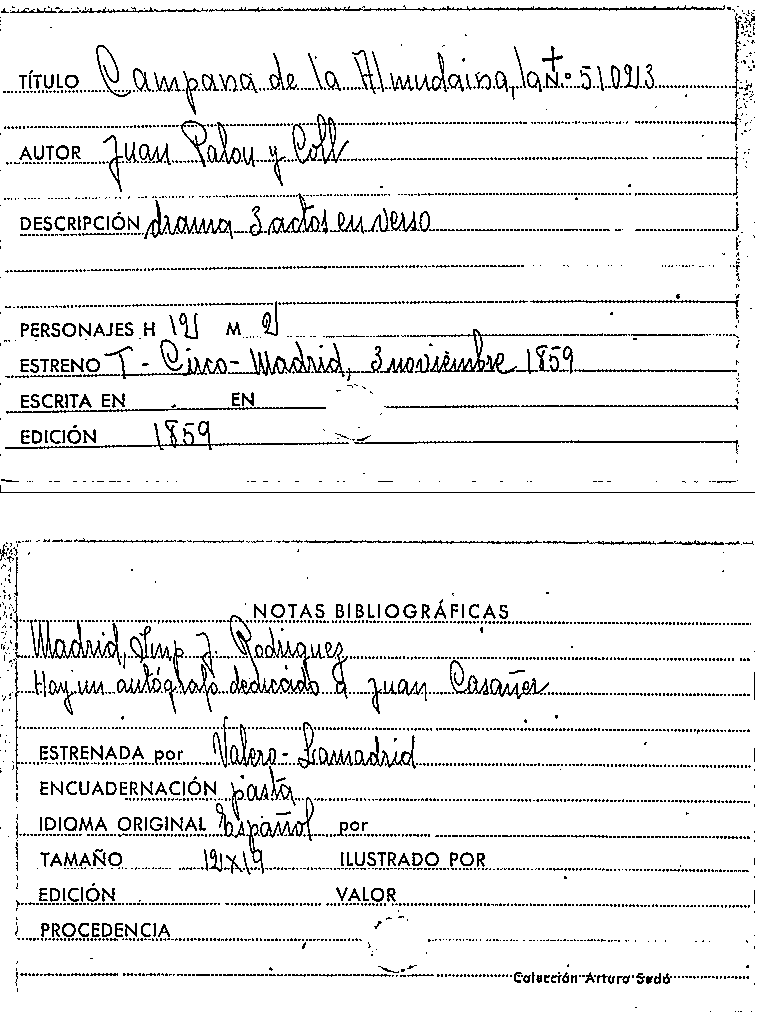 TÍTULO Campana de la Almudaina, la N.º 510213
AUTOR Juan Palou y Coll
DESCRIPCIÓN drama 3 actos en verso
PERSONAJES H 12 M 2
ESTRENO T - Circo - Madrid, 3 noviembre 1859
ESCRITA EN EN
EDICIÓN 1859
NOTAS BIBLIOGRÁFICAS
Madrid, Imp J. Rodriguez
Hay un autógrafo dedicado a Juan Casañer
ESTRENADA por Valero - Lamadrid
ENCUADERNACIÓN pasta
IDIOMA ORIGINAL Español por
TAMAÑO 12x19 ILUSTRADO POR
EDICIÓN VALOR
PROCEDENCIA
Colección Arturo Sedó